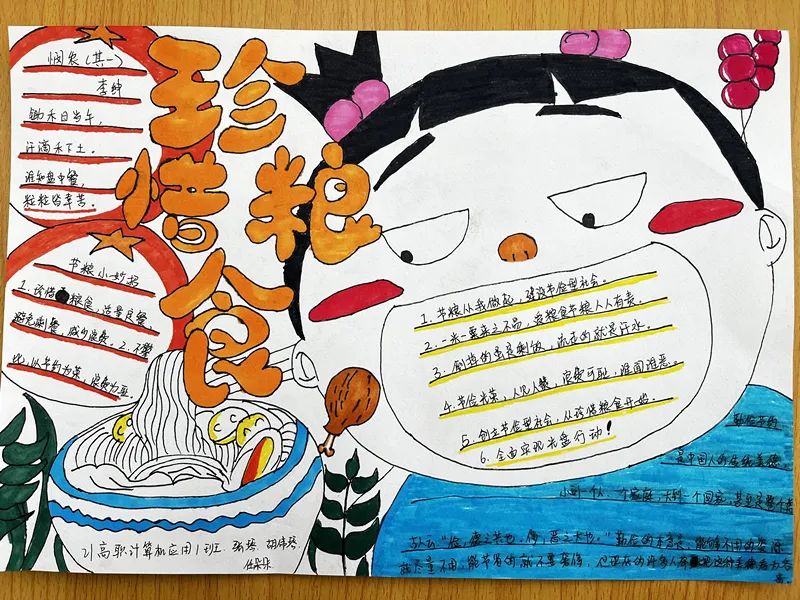 珍惜粮食
悯农（其一）
李绅
锄禾日当午，
汗滴禾下土。
谁知盘中餐，
粒粒皆辛苦。
节粮小妙招
1.珍惜粮食，适量定餐，
避免剩餐，减少浪费。2.不攀
比，以节约为荣，浪费为耻。
1.节粮从我做起，建设节俭型社会。
2.一米一粟来之不易，爱粮食节粮人人有责。
3.倒掉的虽是剩饭，流走的就是汗水。
4.节俭光荣，人见人赞，浪费可耻，谁闻谁恶。
5.创立节俭型社会，从珍惜粮食开始。
6.全面实现光盘行动！
勤俭节约
是中国人的传统美德。
小到一个人、一个家庭，大到一个国家，甚至是整个
古人云"俭，德之共也，侈，恶之大也。"
就尽量不用，能节省的就不要奢侈，
21高职计算机应用1班